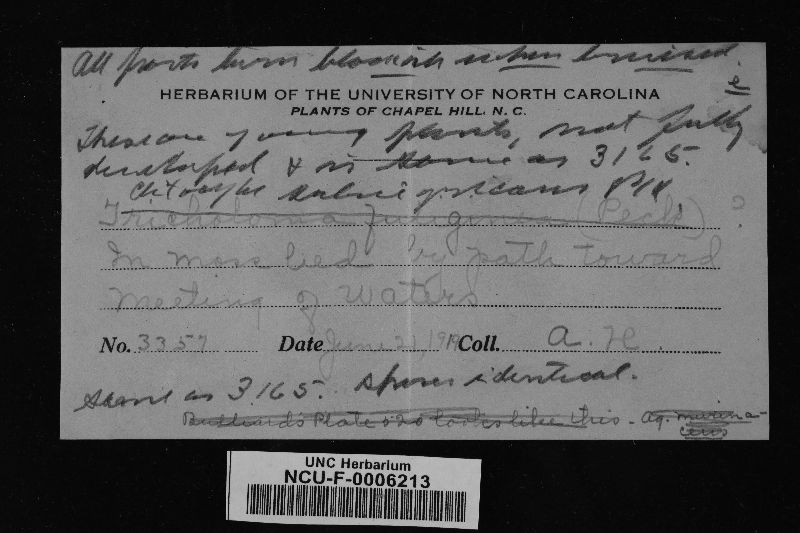 All parts turn blackish when bruised.
HERBARIUM OF THE UNIVERSITY OF NORTH CAROLINA
PLANTS OF CHAPEL HILL, N. C.
These are young plants, not fully
developed & is same as 3165.
Clitocybe Pk
Tricholoma fuliginea (Peck) ?
In moss bed by path toward
Meeting of Waters
No. 3357 Date June 21, 191 Coll. A. H.
same as 3165. Spores identical.
Bulliard's Plate 520 looks like this. Ag. murina-
ceus
UNC Herbarium
NCU-F-0006213